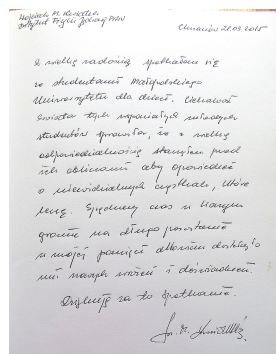 Wojciech M. Kwiatek
Instytut Fizyki Jądrowej PAN
Chrzanów 21.03.2015
Z wielką radością spotkałem się
ze studentami Małopolskiego
Uniwersytetu dla dzieci. Ciekawość
świata tych wspaniałych młodych
studentów sprawiła, że z wielką
odpowiedzialnością stanąłem przed
ich obliczami aby opowiedzieć
o niewidzialnych cząstkach, które
leczą. Spędzony czas w Waszym
gronie na długo pozostanie
w mojej pamięci albowiem dostarczył
mi nowych wrażeń i doświadczeń.
Dziękuję za to spotkanie.